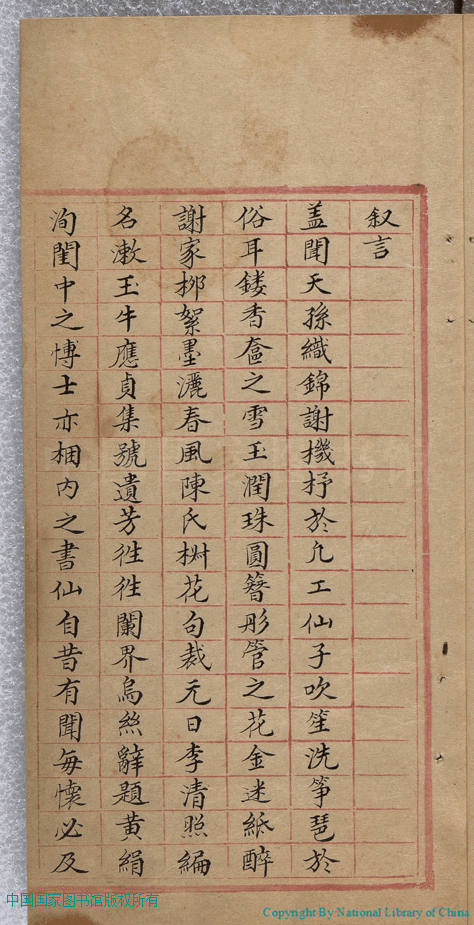 叙言
盖聞天孫織錦謝機抒於凢工仙子吹笙洗筝琶於
俗耳鏤香奩之雪玉潤珠圓簪彤管之花金迷紙醉
謝家柳絮墨灑春風陳氏椒花句裁元日李清照編
名漱玉牛應貞集號遺芳徃徃闌界烏絲辭題黄絹
洵閨中之博士亦梱内之書仙自昔有聞每懷必及
中国国家图书馆版权所有
Copyright By National Library of China